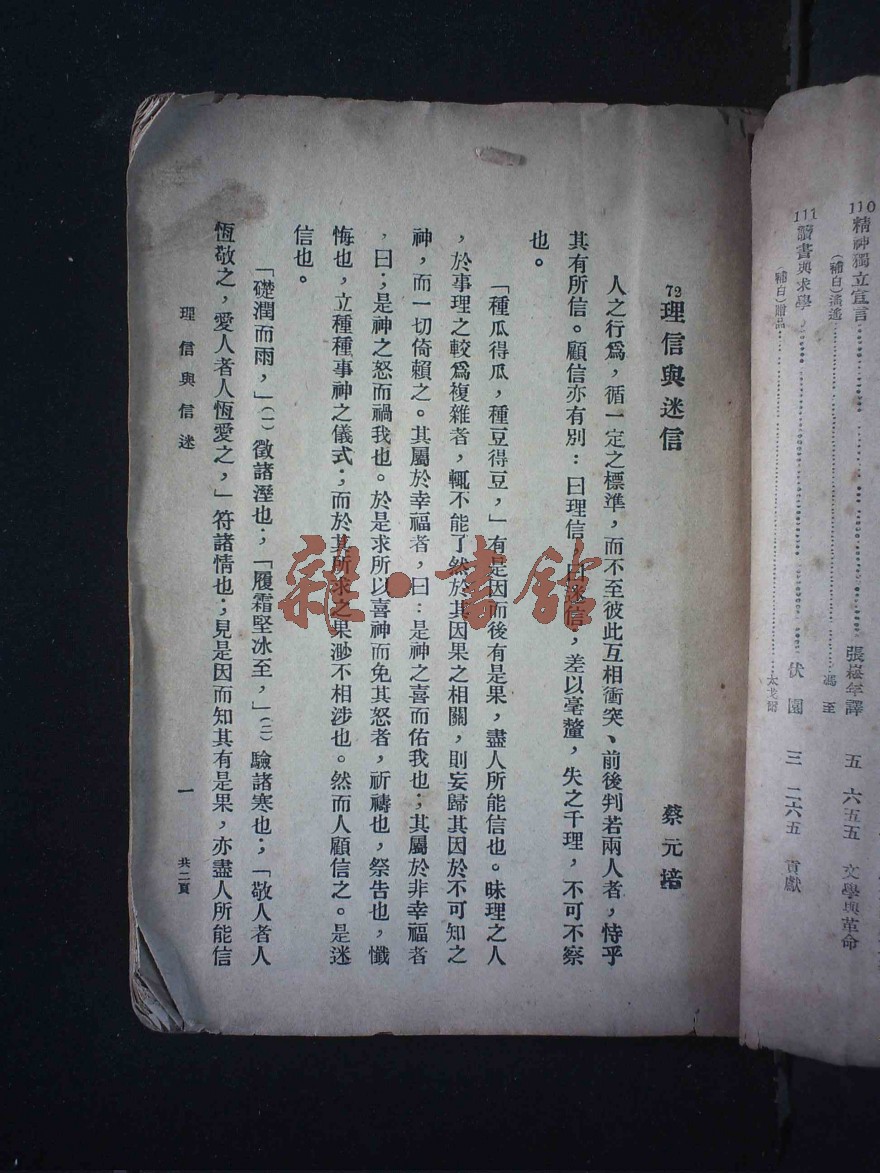 110 精神獨立宣言 張崧年譯 五 六五五 文學與革命
(補白)遙遙 馮至
111 讀書與求學 伏園 三 二六五 貢獻
(補白)贈品 太戈爾
72 理信與迷信 蔡元培
人之行爲，循一定之標準，而不至彼此互相衝突、前後判若兩人者，恃乎
其有所信。顧信亦有別：曰理信，曰迷信，差以毫釐，失之千理，不可不察
也。
「種瓜得瓜，種豆得豆，」有是因而後有是果，盡人所能信也。昧理之人
，於事理之較爲複雜者，輒不能了然於其因果之相關，則妄歸其因於不可知之
神，而一切倚賴之。其屬於幸福者，曰：是神之喜而佑我也；其屬於非幸福者
，曰；是神之怒而禍我也。於是求所以喜神而免其怒者，祈禱也，祭告也，懺
悔也，立種種事神之儀式；而於其所求之果渺不相涉也。然而人顧信之。是迷
信也。
「礎潤而雨，」(一)徵諸溼也；「履霜堅冰至，」(二)驗諸寒也；「敬人者人
恆敬之，愛人者人恆愛之，」符諸情也；見是因而知其有是果，亦盡人所能信
理信與信迷 一 共二頁
雜·書館